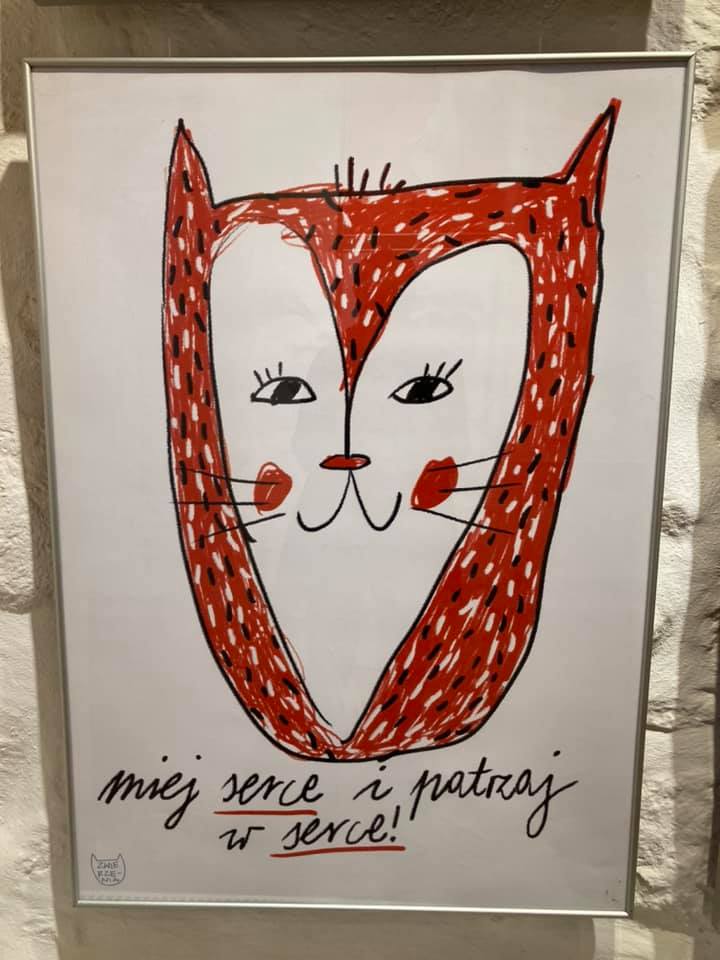 miej serce i patrzaj
w serce!
ZWIE
RZE-
NIA